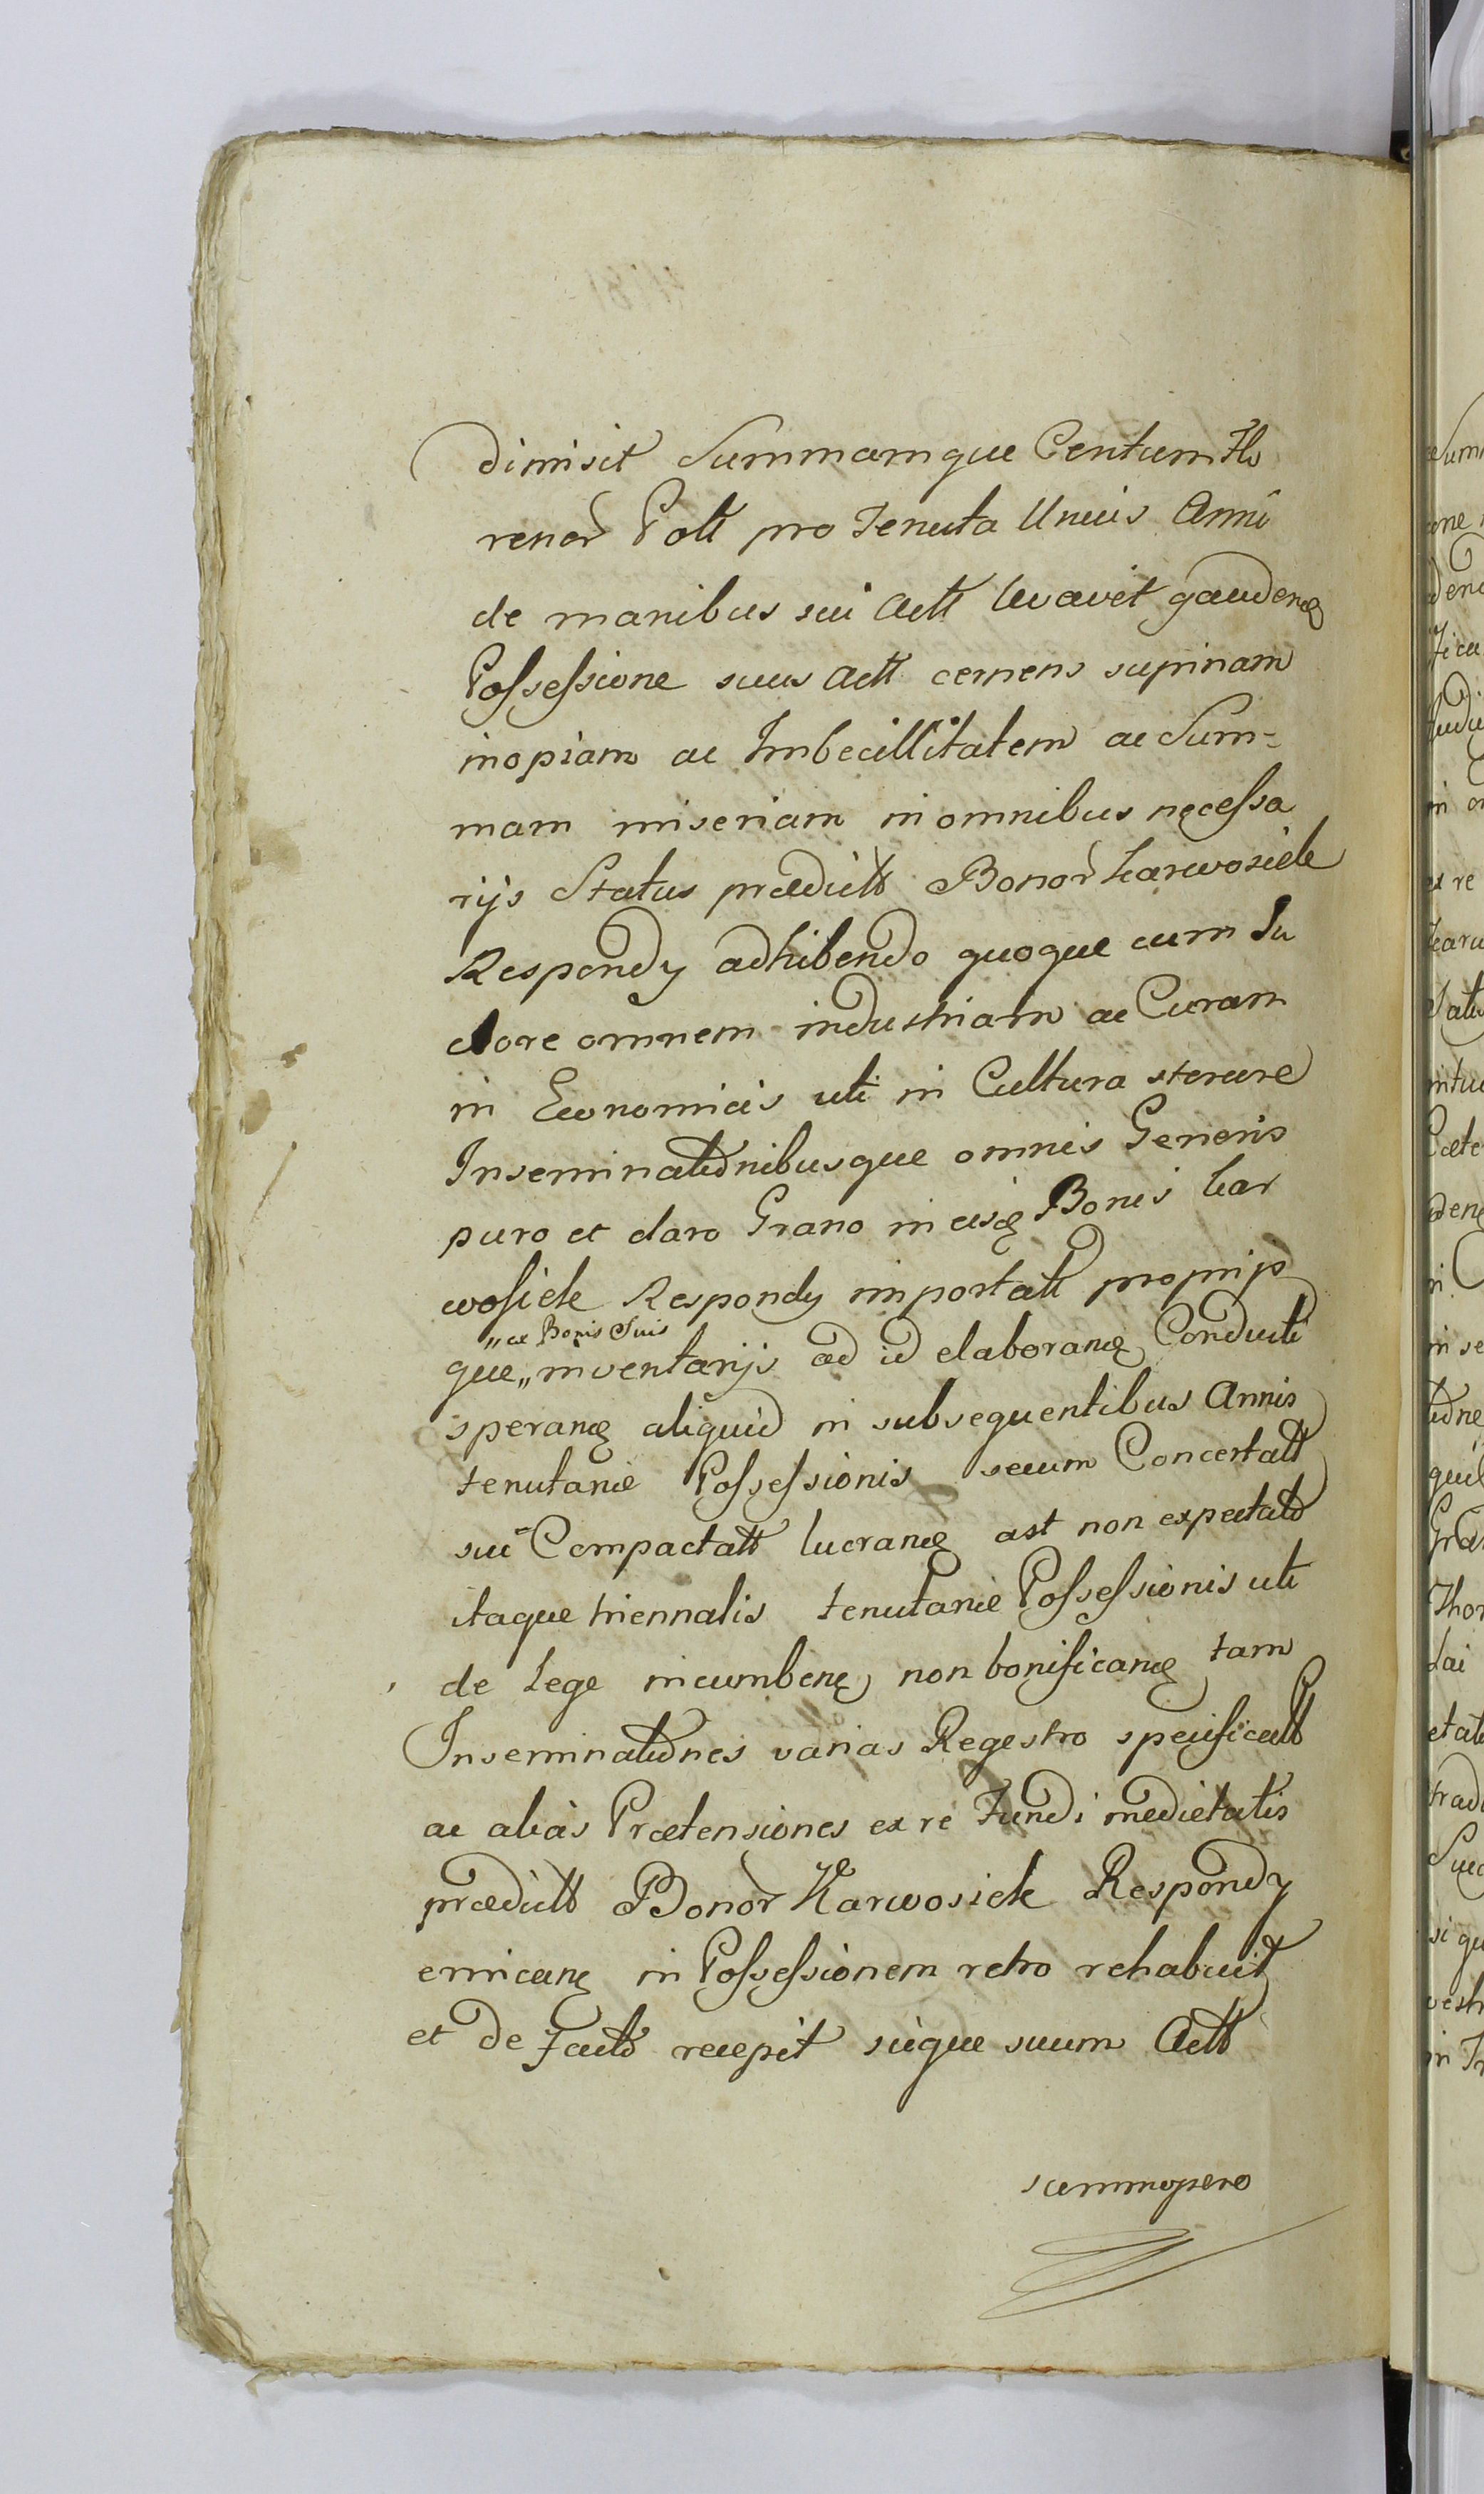 dimisit Summamque Centum Flo
renor Poll pro Tenuta Unius Anni
de manibus sui Actt levavit gaudenꝫ
Possessione suus Actt cernens supinam
inopiam ac Imbecillitatem ac Sum=
mam miseriam in omnibus necessa
rijs Status prædictt Bonor Karwosiek
Respondy adhibendo quoque cum Su
dore omnem industriam ac Curam
in Economicis uti in Cultura stercore
Inseminationibusque omnis Generis
puro et claro Grano in eisꝫ Bonis Kar
wosiek Respondy importatt proprijs
"ac Bonis Suis
que" inventarijs ad id elaboranꝫ Conducti
speranꝫ aliquid in subsequentibus Annis
tenutariæ Possessionis secum Concertatt
sui Compactatt lucranꝫ ast non expectato
itaque triennalis tenutariæ Possessionis uti
de Lege incumbenꝫ non bonificanꝫ tam
Inseminationes varias Regestro specificatt
ac alias Prætensiones ex re Fundi medietatis
prædictt Bonor Karwosiek Respondy
emicanꝫ in Possessionem retro rehabuit
et de facto recepit sicque suum Actt
summopere